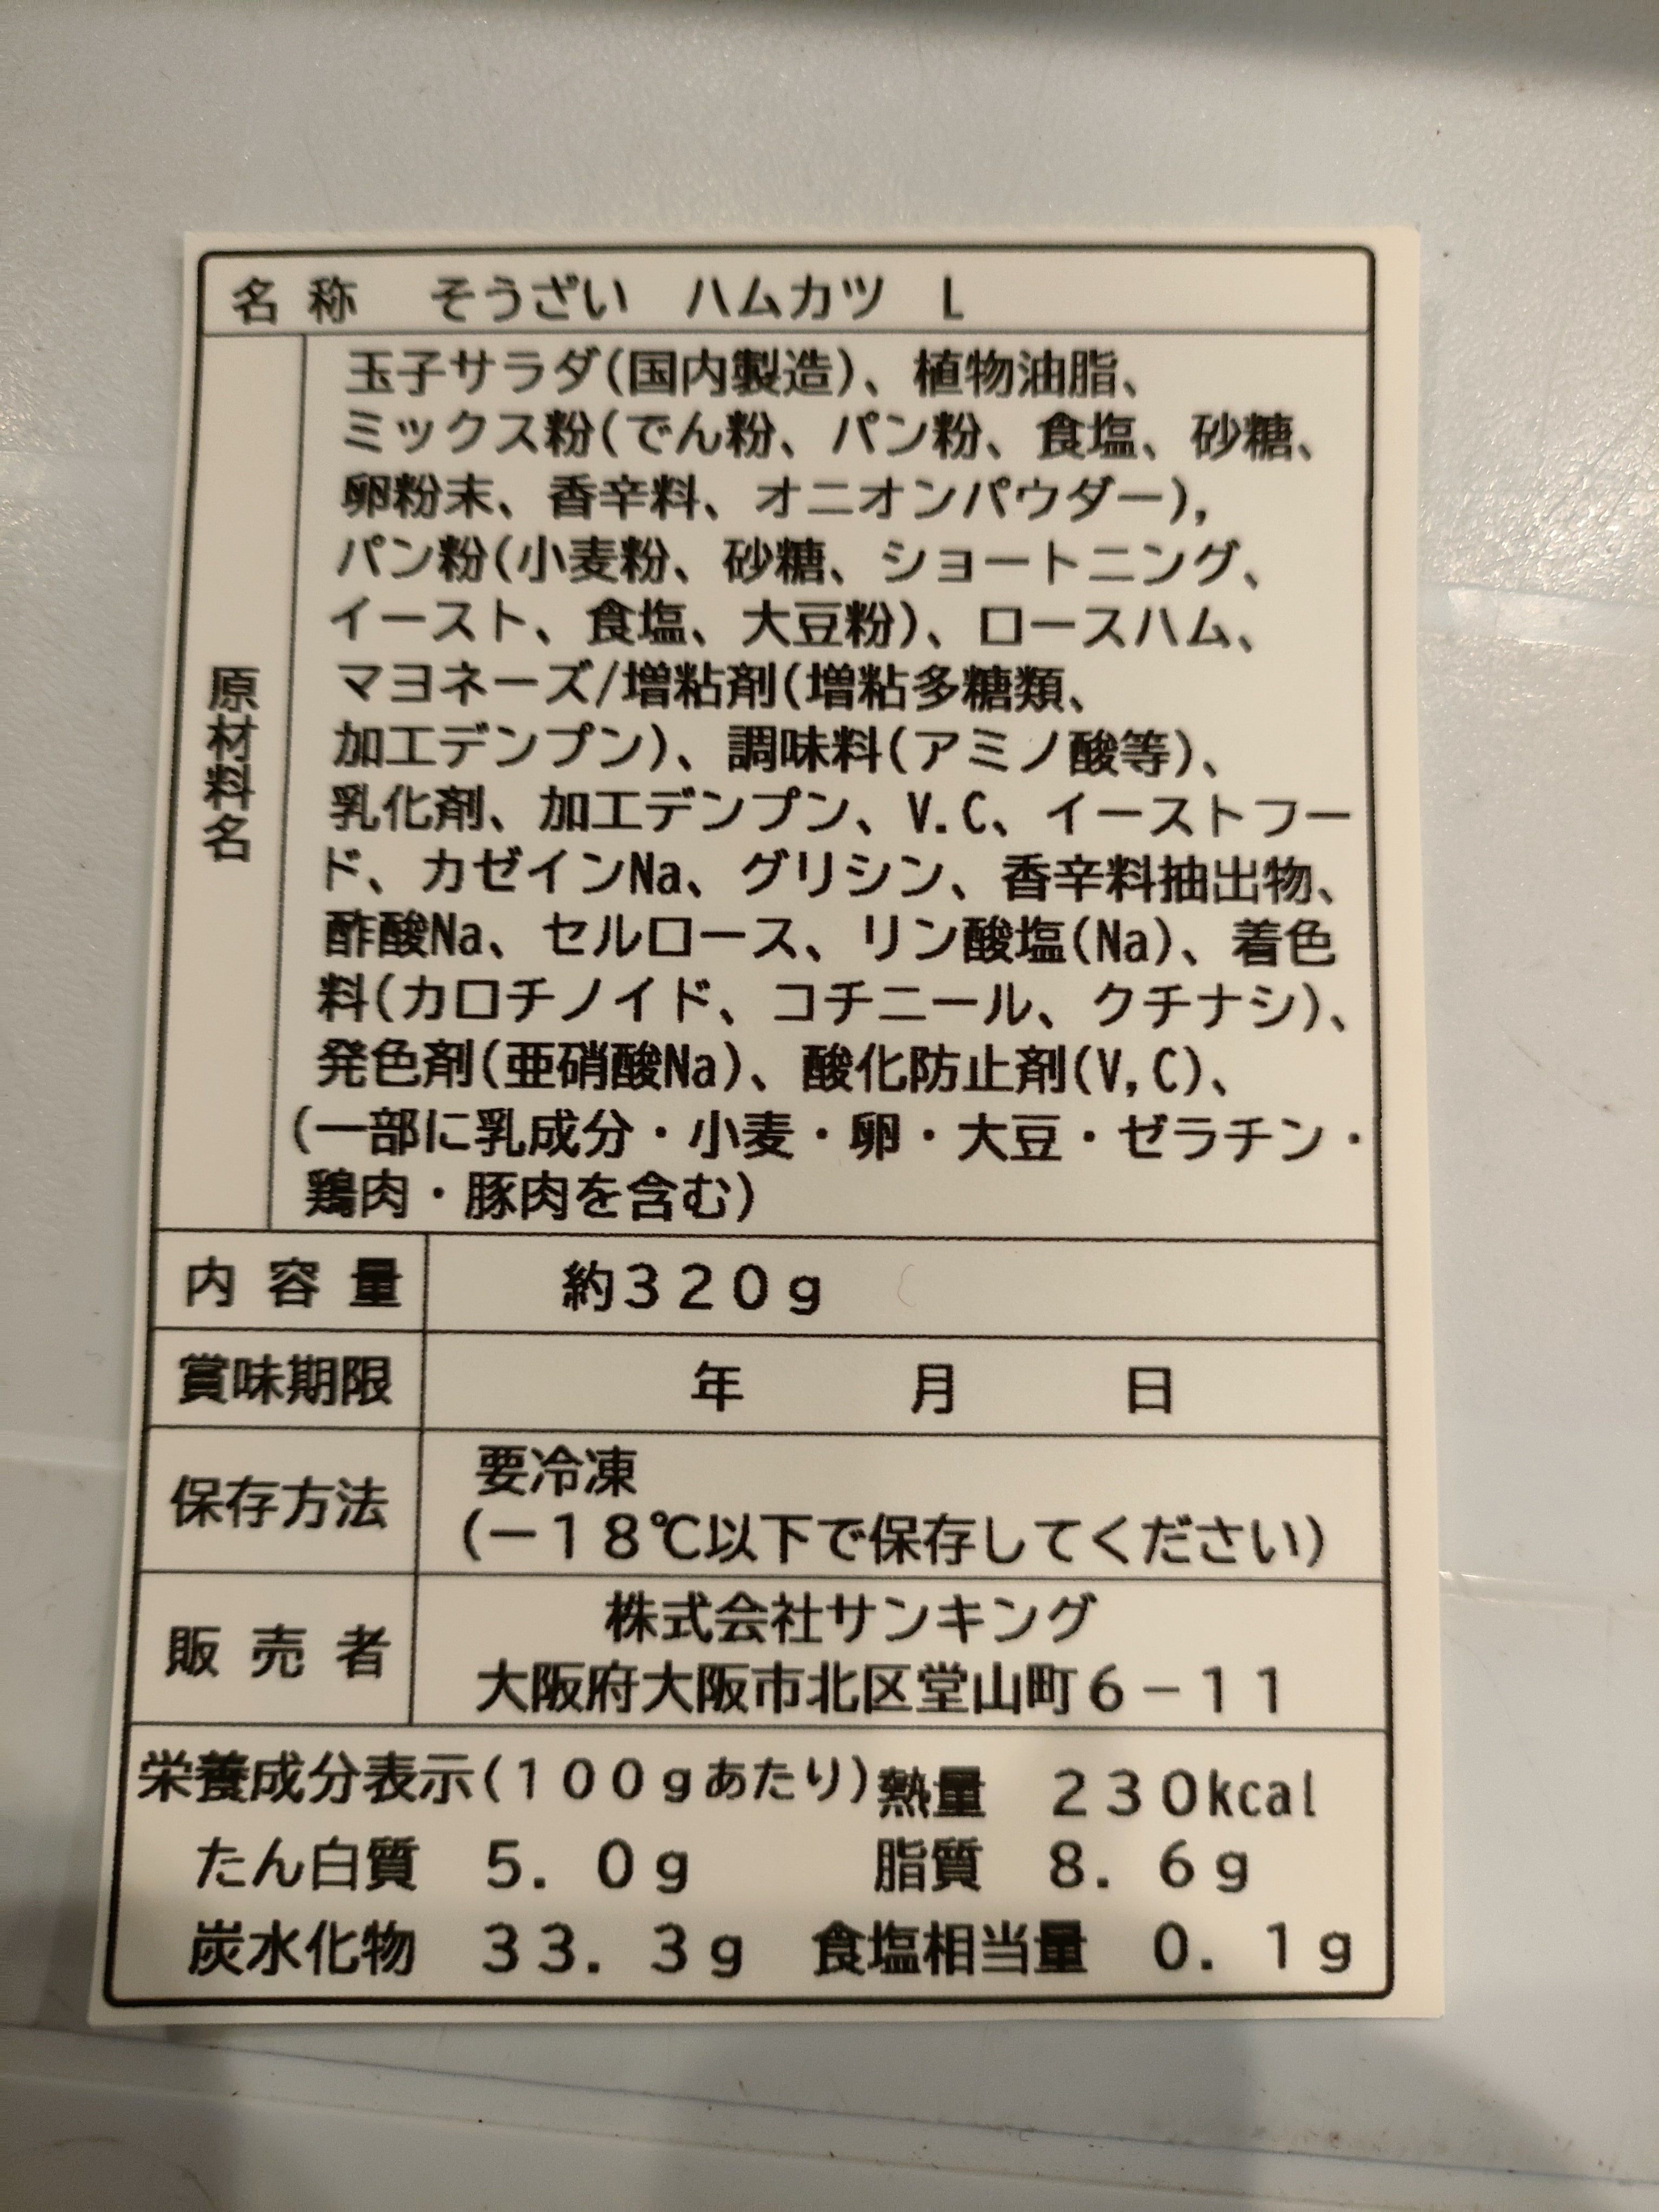 名称 そうざい ハムカツ L
原材料名
玉子サラダ(国内製造)、植物油脂、
ミックス粉(でん粉、パン粉、食塩、砂糖、
卵粉末、香辛料、オニオンパウダー),
パン粉(小麦粉、砂糖、ショートニング、
イースト、食塩、大豆粉)、ロースハム、
マヨネーズ/増粘剤(増粘多糖類、
加工デンプン)、調味料(アミノ酸等)、
乳化剤、加工デンプン、V.C、イーストフー
ド、カゼインNa、グリシン、香辛料抽出物、
酢酸Na、セルロース、リン酸塩(Na)、着色
料(カロチノイド、コチニール、クチナシ)、
発色剤(亜硝酸Na)、酸化防止剤(V,C)、
(一部に乳成分・小麦・卵・大豆・ゼラチン・
鶏肉・豚肉を含む)
内容量 約320g
賞味期限 年 月 日
保存方法
要冷凍
(－18℃以下で保存してください)
販売者
株式会社サンキング
大阪府大阪市北区堂山町6－11
栄養成分表示(100gあたり)熱量 230kcal
たん白質 5.0g 脂質 8.6g
炭水化物 33.3g 食塩相当量 0.1g